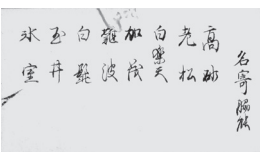 名寄脇能
高砂
老松
白楽天
加茂
難波
白髭
玉井
氷室